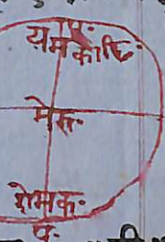 यमकोटिः
मेरुः
रोमकः
प॰